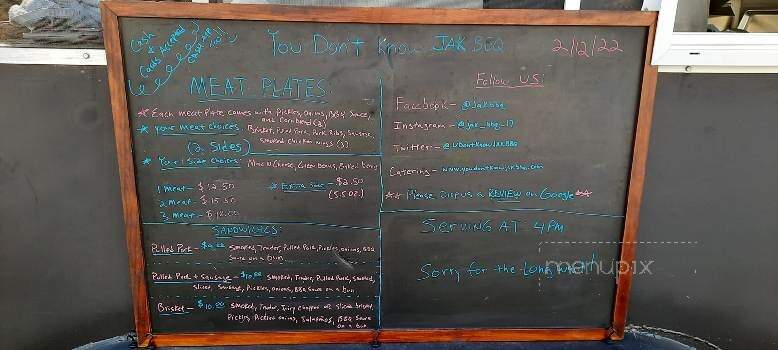 Cash
&
Cards Accepted
You Don't Know JAK BBQ
2/12/22
MEAT PLATES:
* Each meat Plate comes with Pickles, Onions, BBQ Sauce,
and Cornbread (2)
* Your meat choices: Brisket, Pulled Pork, Pork Ribs, Sausage,
(2 Sides) Smoked Chicken wings (3)
* Your 1 Side Choices: Mac N Cheese, Green beans, Baked beans
1 meat - $12.50
2 meat - $15.50
3 meat - $18.00
* Extra Side - $2.50
(5.5oz.)
SANDWICHES:
Pulled Pork - $9.00 Smoked, Tender, Pulled Pork, Pickles, onions, BBQ
Sauce on a bun
Pulled Pork + Sausage - $10.00 Smoked, Tender, Pulled Pork, Smoked,
sliced, Sausage, Pickles, onions, BBQ Sauce on a bun
Brisket - $10.00 Smoked, Tender, Juicy chopped or sliced brisket,
Pickles, Pickled onions, Jalapeños, BBQ Sauce
on a bun
Follow US:
Facebook - @jakbbq
Instagram - @jak_bbq_17
Twitter - @UDontKnowJAKBBQ
Catering - www.youdontknowjakbbq.com
** Please Drop us a REVIEW on Google **
SERVING AT 4PM
Sorry for the Long wait!
menupix